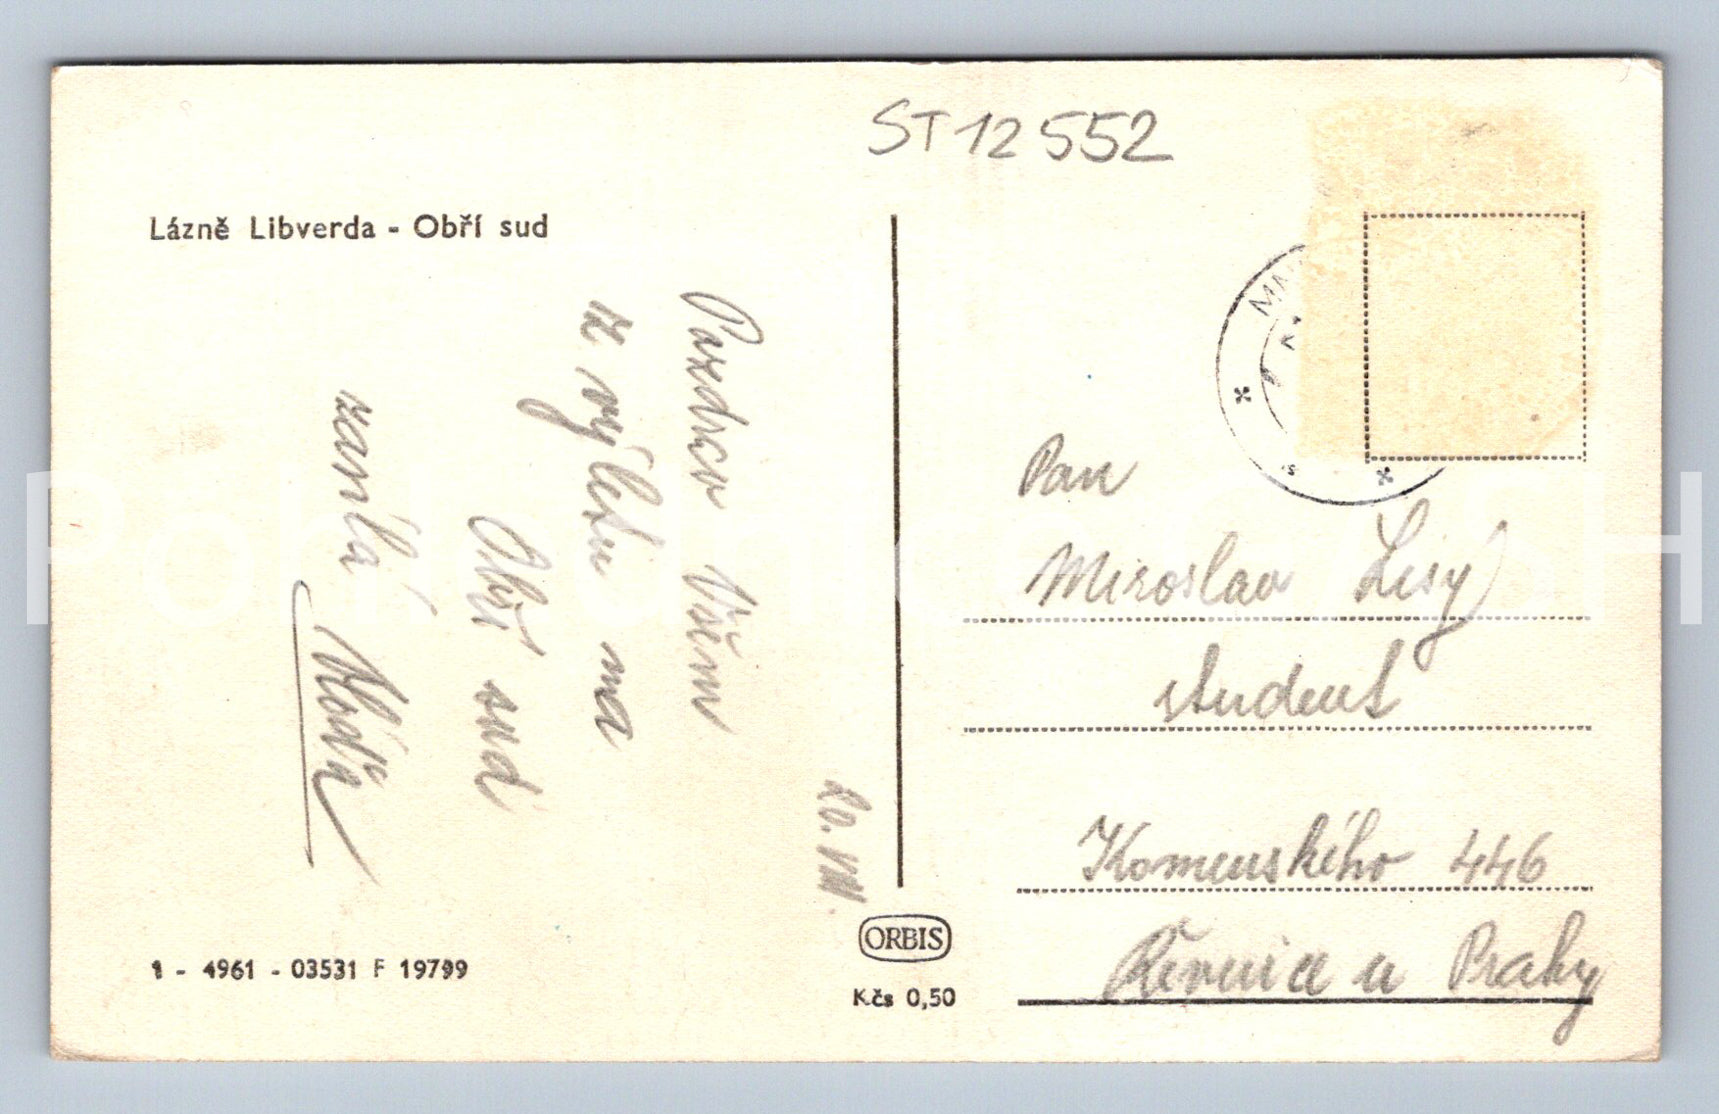 ST12552
Lázně Libverda - Obří sud
Pozdrav Všem
z výletu na
Obří sud
zasílá
20. VIII.
Pan
Miroslav Lisý
student
Komenského 446
Řevnice u Prahy
1 - 4961 - 03531 F 19799
ORBIS
Kčs 0,50